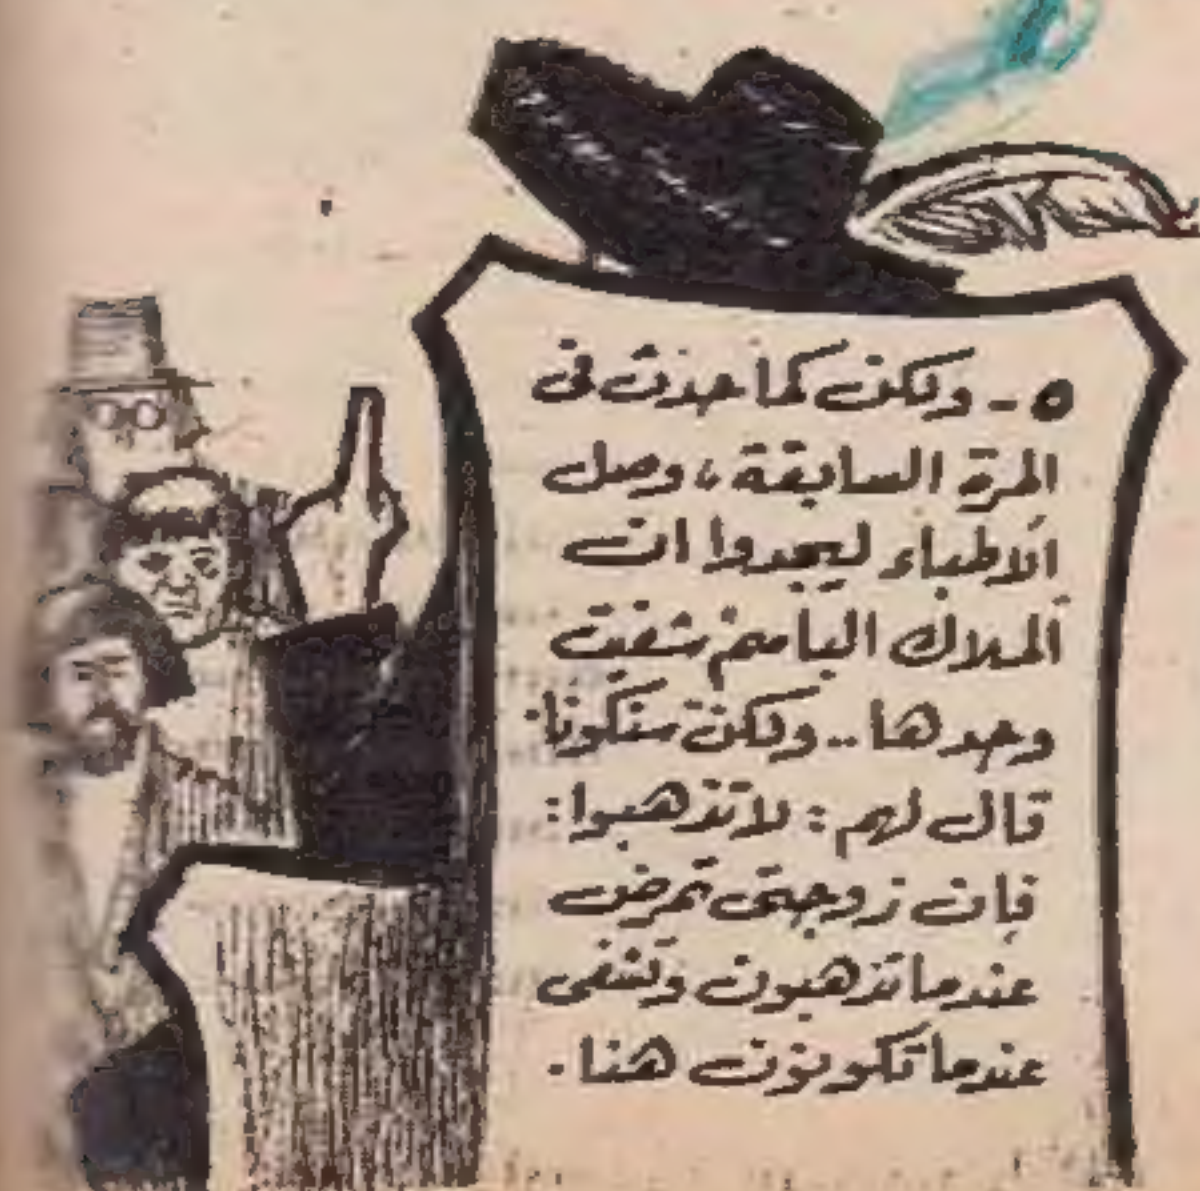 ٥ - ولكن كما حدث فى
المرة السابقة، وصل
الأطباء ليجدوا ان
الملاك الباسم شفيت
وحدها.. ولكن سنكونا
قال لهم: لا تذهبوا:
فإن زوجتى تمرض
عندما تذهبون وتشفى
عندما تكونون هنا.